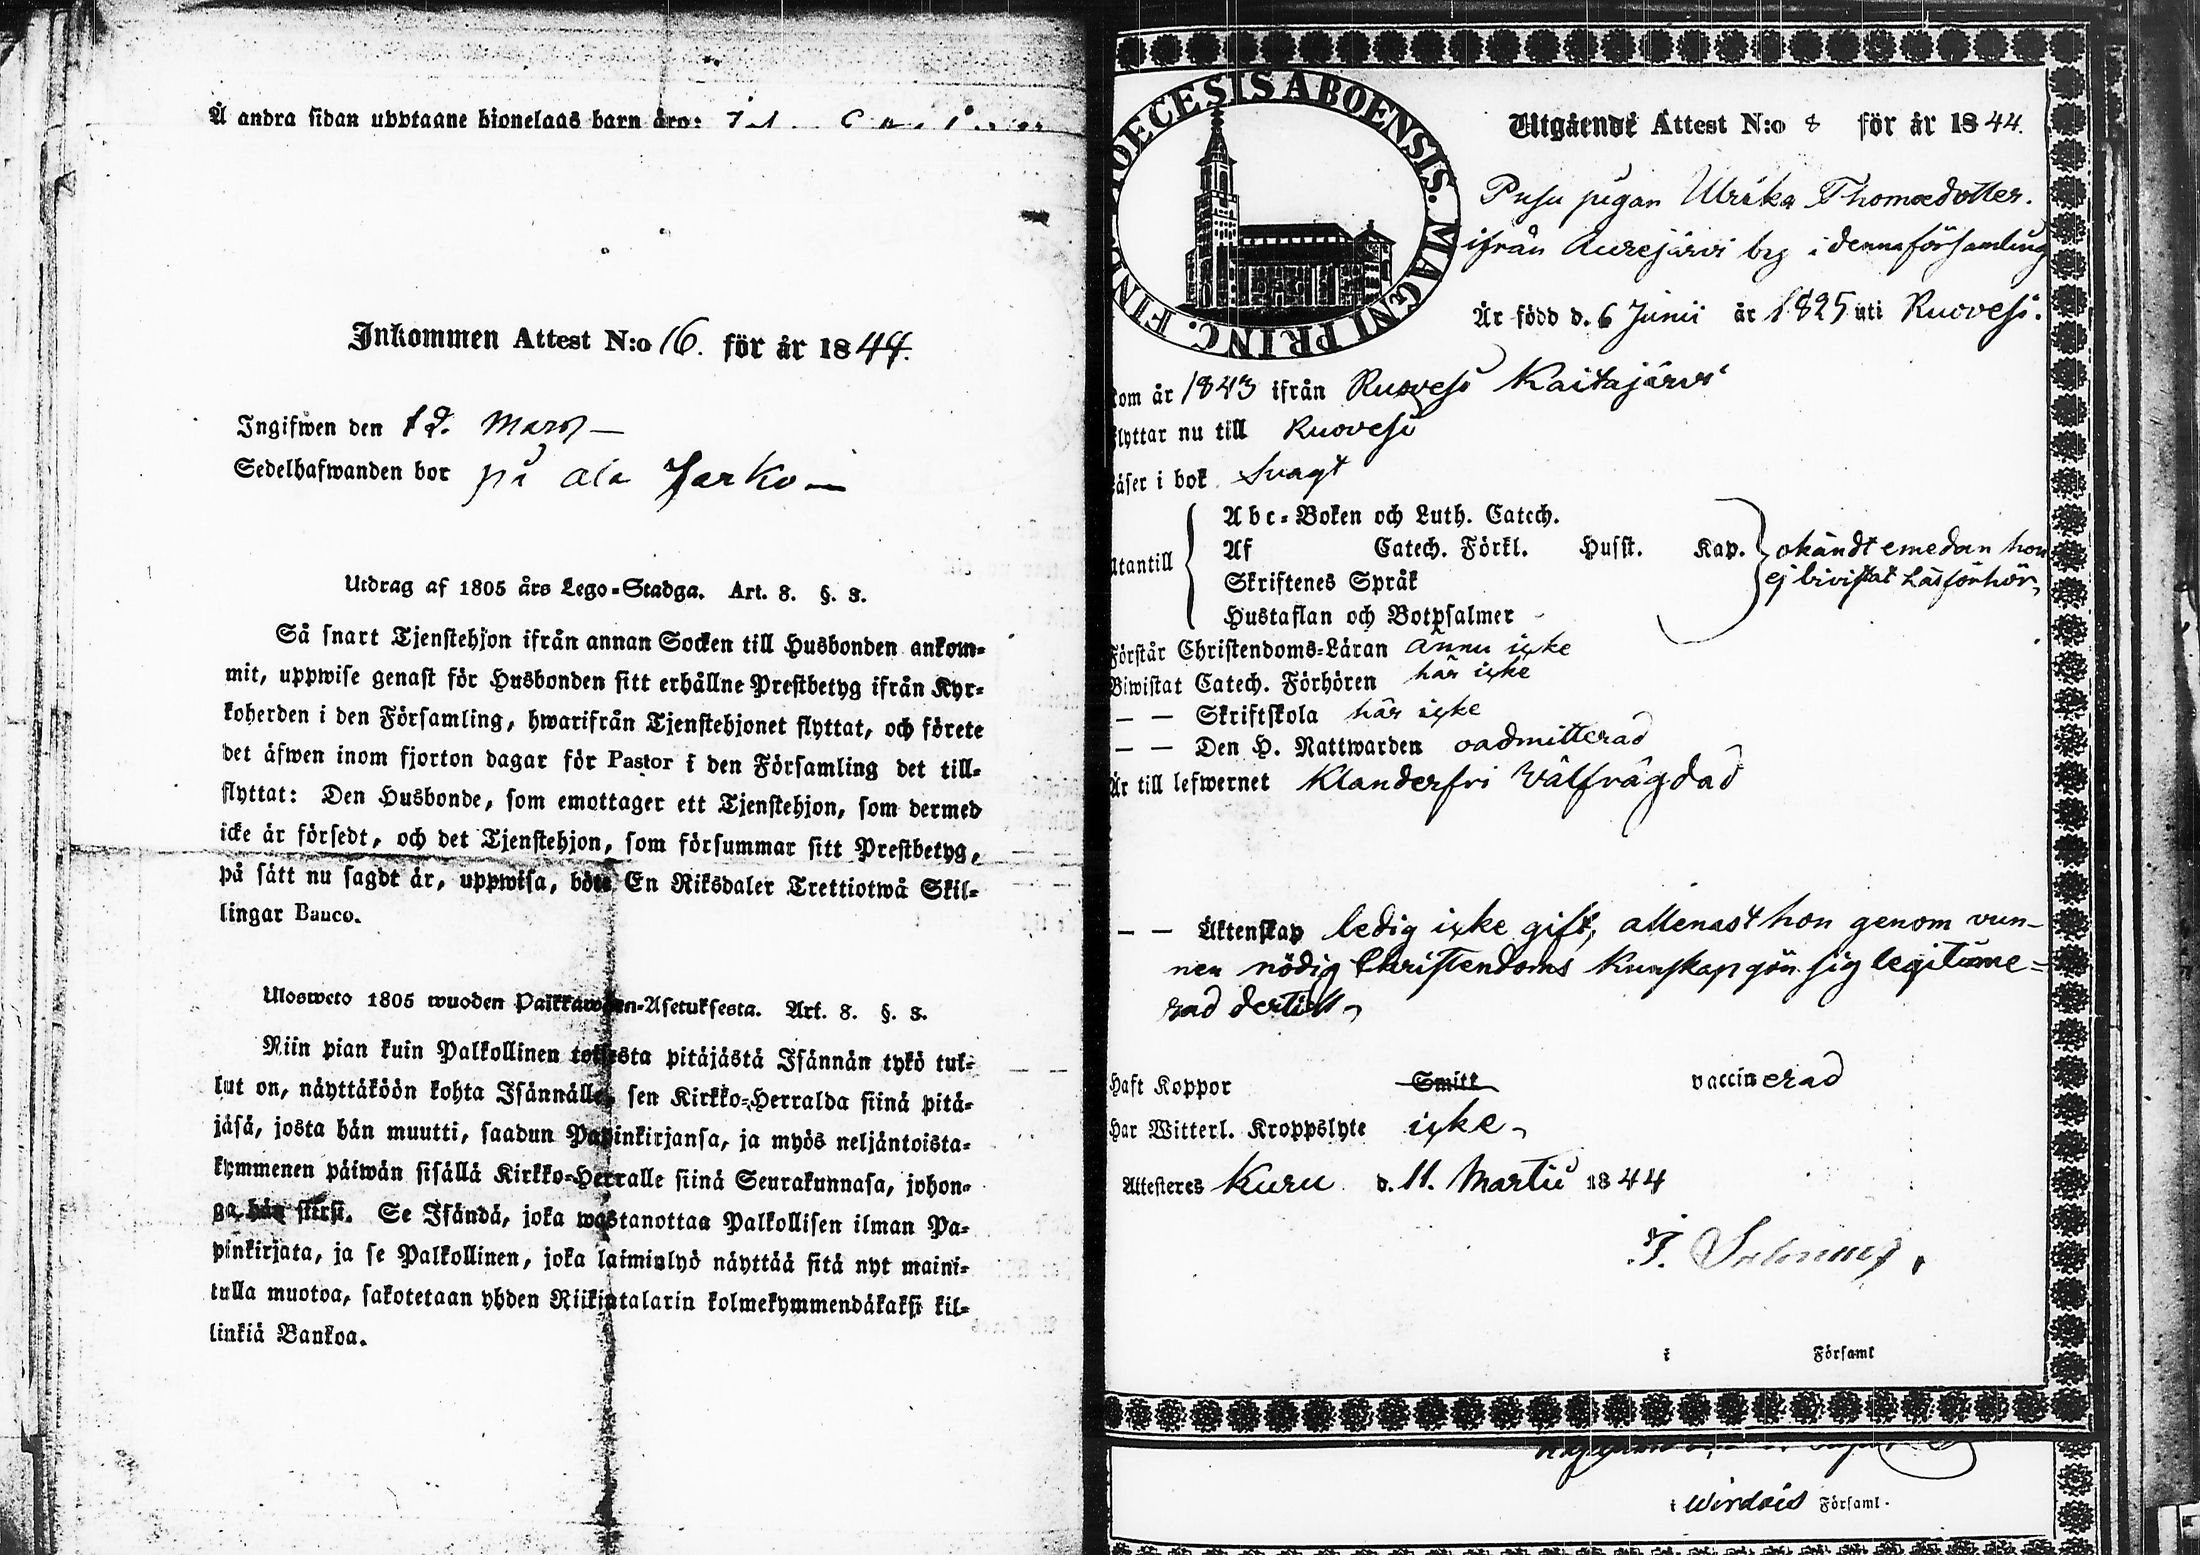 Å andra sidan upptagne hionelaas barn äro:
Inkommen Attest N:o 16. för år 1844.
Ingifwen den 12. Mars —
Sedelhafwanden bor på Ala Jarko —
Utdrag af 1805 års Lego-Stadga. Art. 8. §. 3.
Så snart Tjenstehjon ifrån annan Socken till Husbonden ankom-
mit, uppwise genast för Husbonden sitt erhållne Prestbetyg ifrån Kyr-
koherden i den Församling, hwarifrån Tjenstehjonet flyttat, och förete
det äfwen inom fjorton dagar för Pastor i den Församling det till-
flyttat: Den Husbonde, som emottager ett Tjenstehjon, som dermed
icke är försedt, och det Tjenstehjon, som försummar sitt Prestbetyg,
på sätt nu sagdt är, uppwisa, böte En Riksdaler Trettiotwå Skil-
lingar Banco.
Ulosweto 1805 wuoden Palkkawäen-Asetuksesta. Art. 8. §. 3.
Niin pian kuin Palkollinen toisesta pitäjästä Isännän tykö tul-
lut on, näyttäköön kohta Isännälle, sen Kirkko-Herralda siinä pitä-
jäsä, josta hän muutti, saadun Papinkirjansa, ja myös neljäntoista-
kymmenen päiwän sisällä Kirkko-Herralle siinä Seurakunnasa, johon-
ga hän siirsi. Se Isändä, joka wastanottaa Palkollisen ilman Pa-
pinkirjata, ja se Palkollinen, joka laiminlyö näyttää sitä nyt maini-
tulla muotoa, sakotetaan yhden Riikintalarin kolmekymmendäkaksi kil-
linkiä Bankoa.
DIOECESIS ABOENSIS. MAGNI PRINC. FINL.
Utgående Attest N:o 8 för år 1844.
Pigan Ulrika Thomædotter.
ifrån Aurejärvi by i denna församling
Är född d. 6 Junii år 1825 uti Ruovesi.
Kom år 1843 ifrån Ruovesi Kaitajärvi
flyttar nu till Ruovesi
Läser i bok Svagt
Utantill
Abc-Boken och Luth. Catech.
Af Catech. Förkl. Husst. Kap. okändt emedan hon
Skriftenes Språk ej bivistat Läsförhör
Hustaflan och Botpsalmer
Förstår Christendoms-Läran ännu icke
Biwistat Catech. Förhören här icke
— — Skriftskola här icke
— — Den H. Nattwarden oadmitterad
Är till lefwernet Klanderfri Välfrägdad
— — Äktenskap ledig icke gift, allenast hon genom vun-
nen nödig Christendoms Kunskap gör sig legitime-
rad dertill
Haft Koppor Smitt vaccinerad
Har Witterl. Kroppslyte icke
Attesteres Kuru d. 11. Martii 1844
i Församl
i Wirdois Församl.